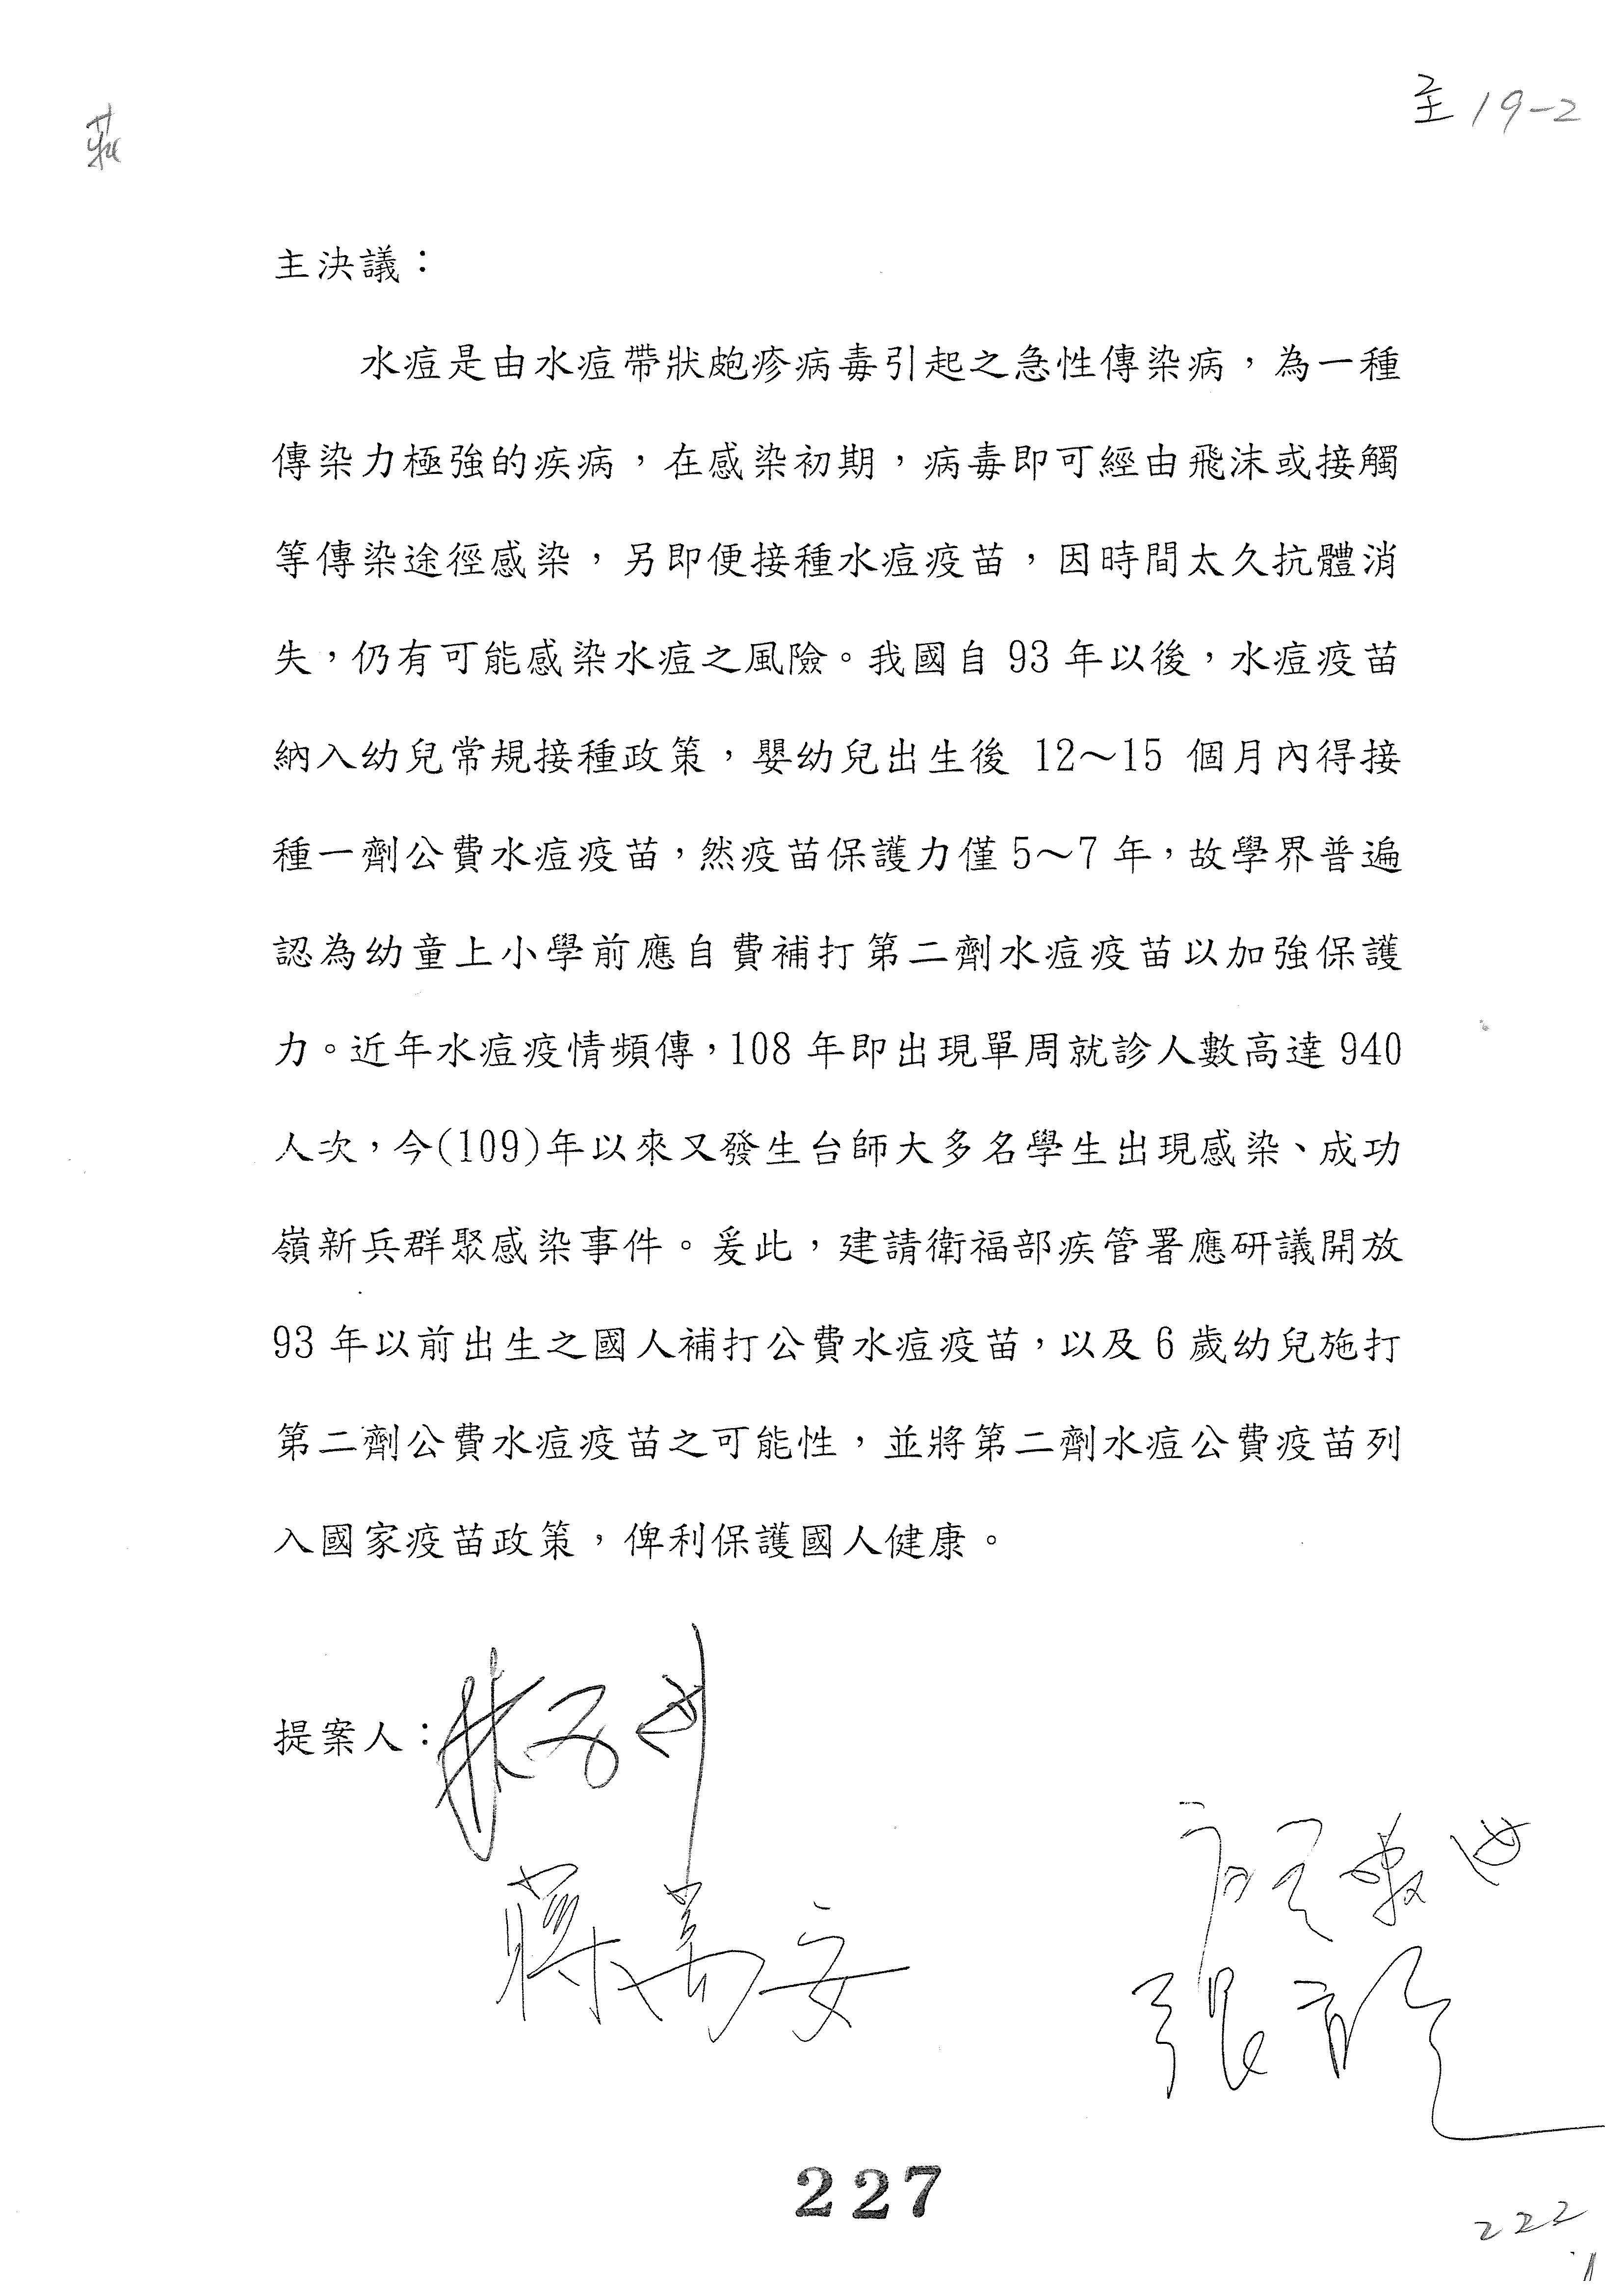 莊
主 19-2
主決議：
水痘是由水痘帶狀皰疹病毒引起之急性傳染病，為一種
傳染力極強的疾病，在感染初期，病毒即可經由飛沫或接觸
等傳染途徑感染，另即便接種水痘疫苗，因時間太久抗體消
失，仍有可能感染水痘之風險。我國自 93 年以後，水痘疫苗
納入幼兒常規接種政策，嬰幼兒出生後 12～15 個月內得接
種一劑公費水痘疫苗，然疫苗保護力僅 5～7 年，故學界普遍
認為幼童上小學前應自費補打第二劑水痘疫苗以加強保護
力。近年水痘疫情頻傳，108 年即出現單周就診人數高達 940
人次，今(109)年以來又發生台師大多名學生出現感染、成功
嶺新兵群聚感染事件。爰此，建請衛福部疾管署應研議開放
93 年以前出生之國人補打公費水痘疫苗，以及 6 歲幼兒施打
第二劑公費水痘疫苗之可能性，並將第二劑水痘公費疫苗列
入國家疫苗政策，俾利保護國人健康。
提案人：
蔣萬安
張育
227
222